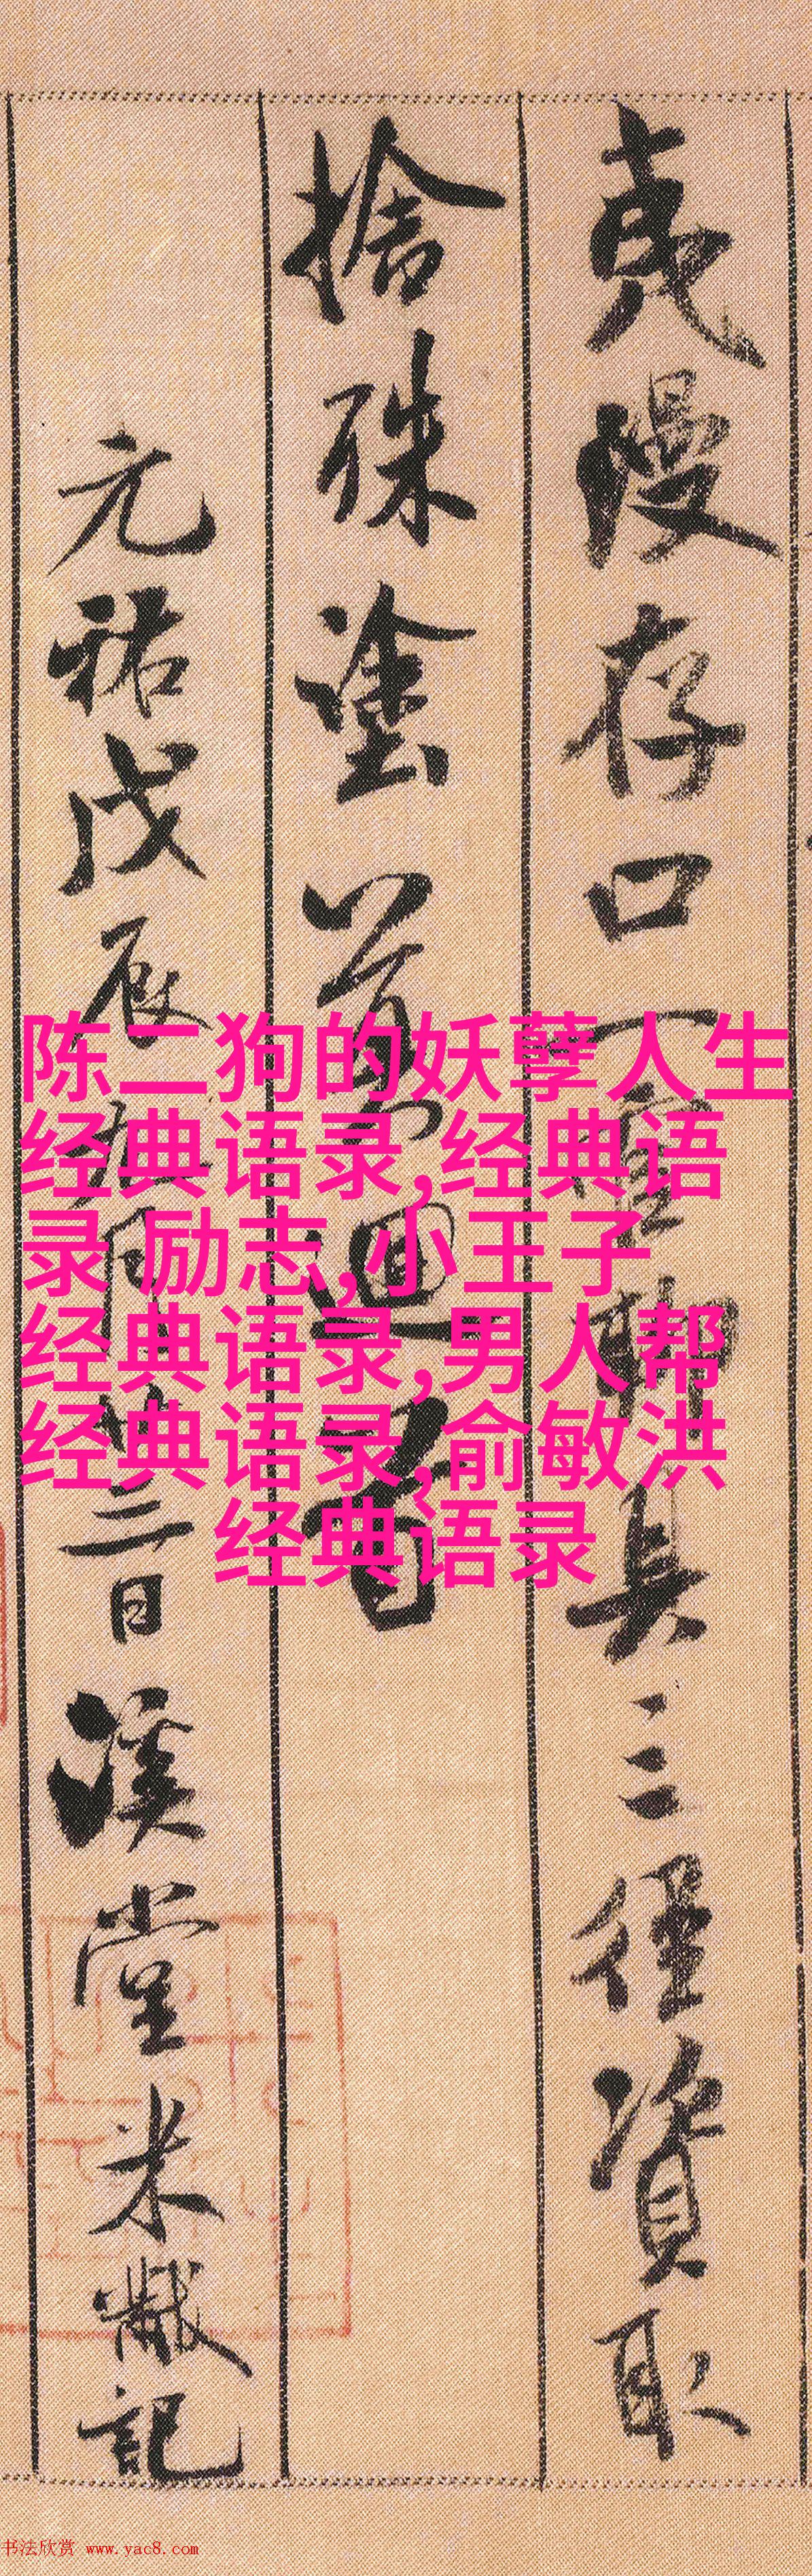 夷漫存口一官聊具三徑資取
捨殊塗莫迴首
元祐戊辰九月廿三日溪堂米黻記
陈二狗的妖孽人生
经典语录,经典语
录 励志,小王子
经典语录,男人帮
经典语录,俞敏洪
经典语录
书法欣赏 www.yac8.com